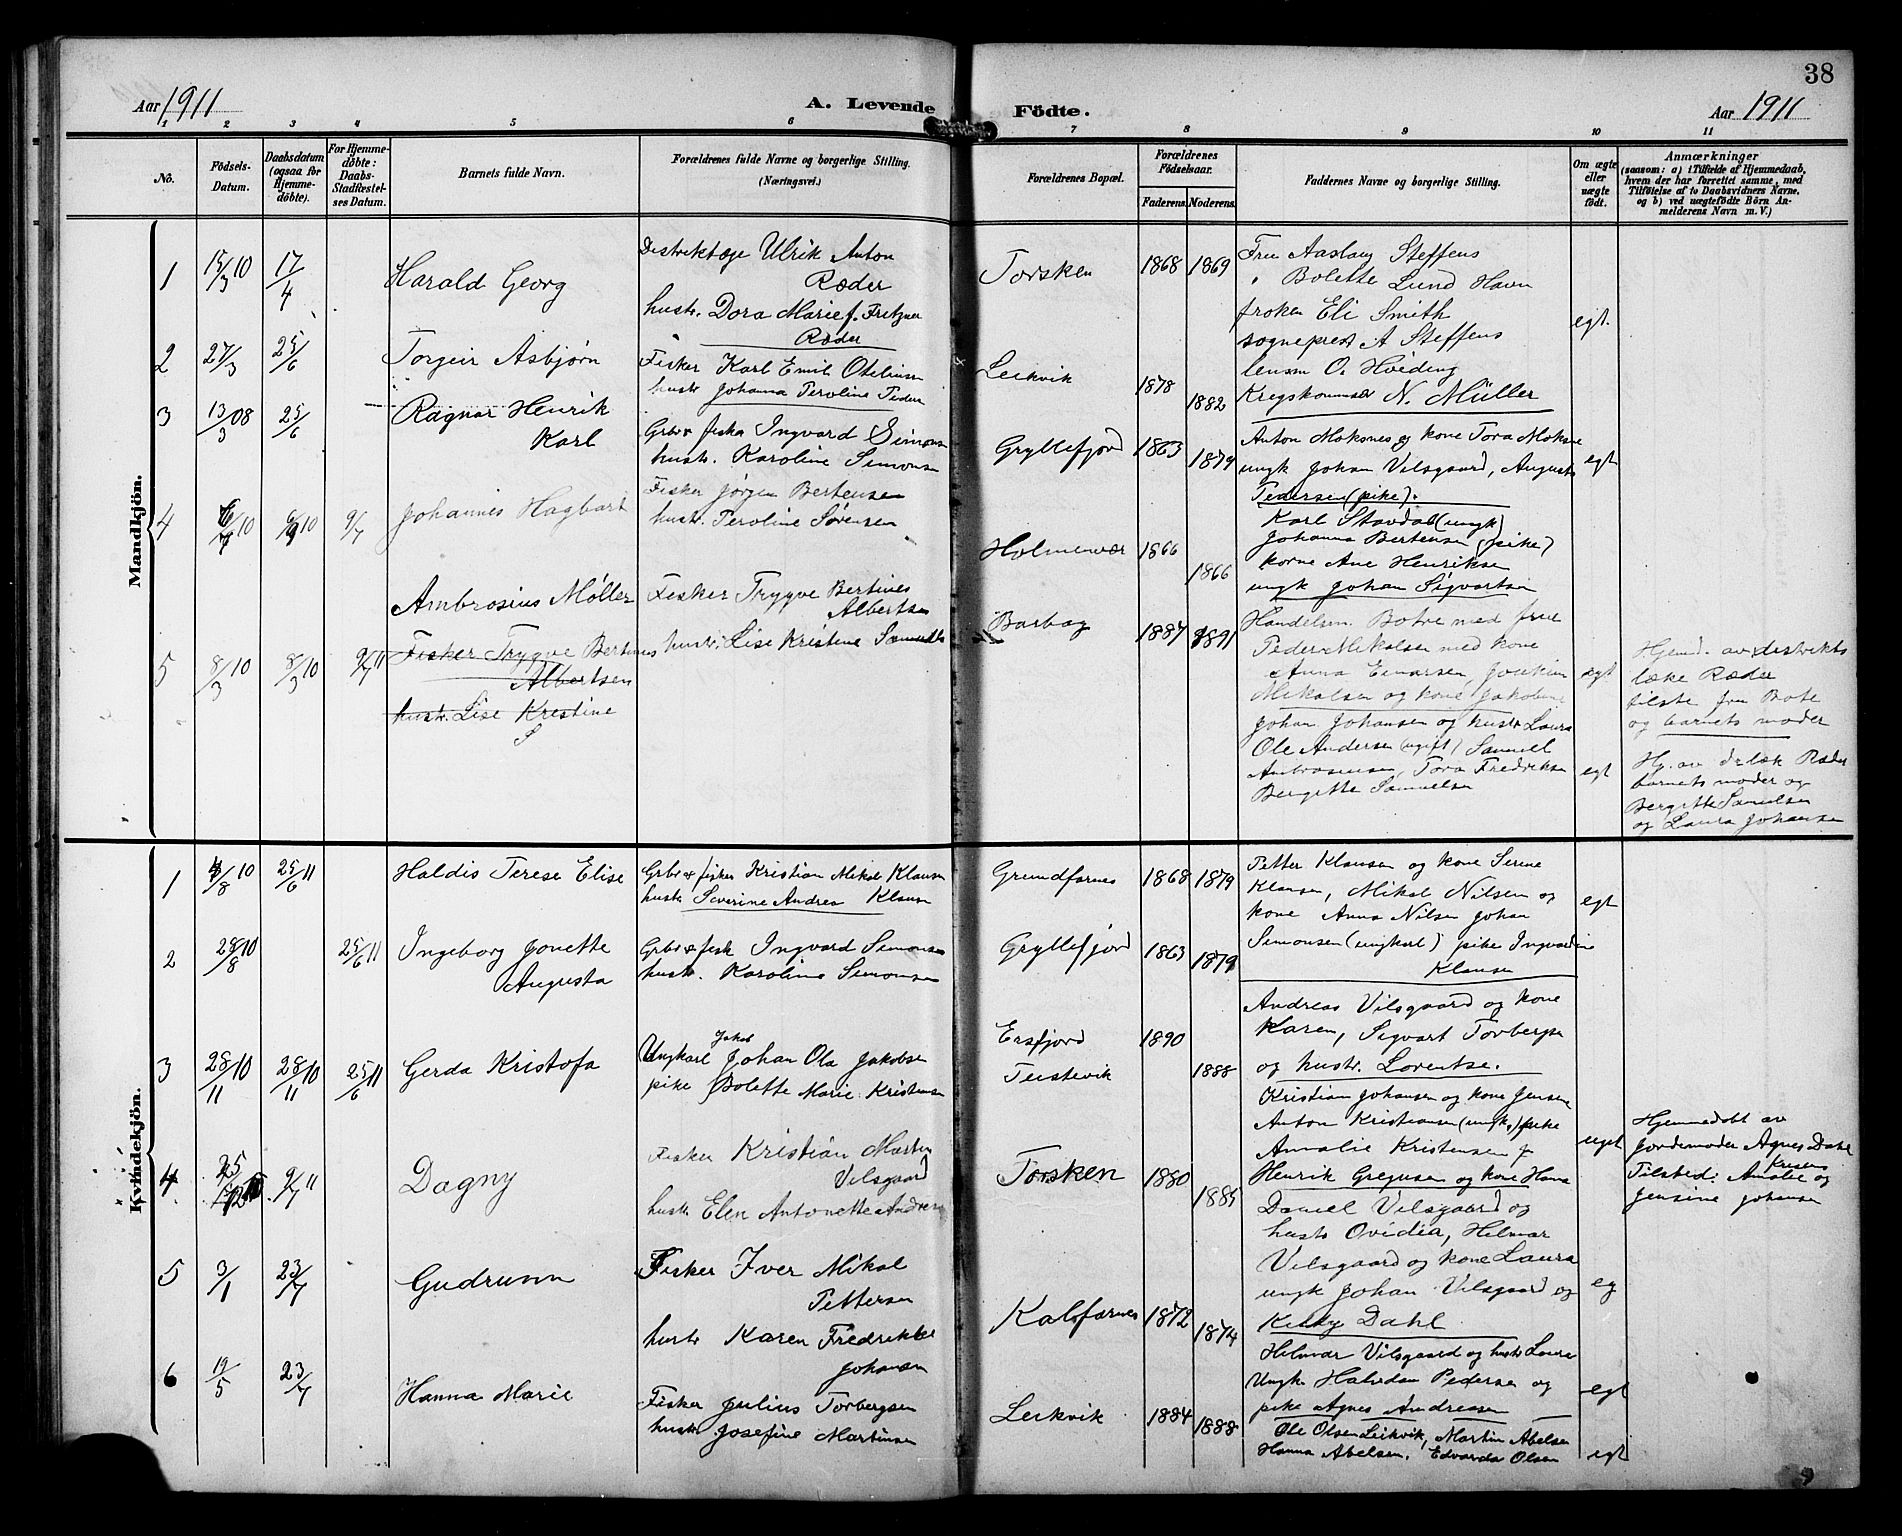 38
Aar 1911
A. Levende Födte.
Aar 1911
1 2 3 4 5 6 7 8 9 10 11
Nô.
Födsels-
Datum.
Daabsdatum
(ogsaa for
Hjemme-
döbte).
For Hjemme-
döbte:
Daabs-
Stadfæstel-
ses Datum.
Barnets fulde Navn.
Forældrenes fulde Navne og borgerlige Stilling.
(Næringsvei.)
Forældrenes Bopæl.
Forældrenes
Födselsaar.
Faderens. Moderens.
Faddernes Navne og borgerlige Stilling.
Om ægte
eller
uægte
født.
Anmærkninger
(saasom: a) i Tilfælde af Hjemmedaab,
hvem der har forrettet samme, med
Tilföielse af to Daabsvidners Navne,
og b) ved uægtefödte Börn An-
melderens Navn m. V.)
Mandkjön.
1 15/3 10 17/4 Harald Georg
Distriktslæge Ulrik Anton
Ræder
hustr. Dora Marie f. Fritzner
Ræder
Torsken 1868 1869
Fru Aaslaug Steffens
" Bolette Lund Havn
frøken Eli Smith
sogneprest A Steffens
lensm O. Høiding
Krigskommisær N. Müller
egt.
2 27/3 25/6 Torgeir Asbjørn
Fisker Karl Emil Oteliusen
hustr Johanna Peroline Peder
Leikvik 1878 1882
Anton Moksnes og kone Tora Moksne
ungk Johan Vilsgaard, Augusta
Pedersen (pike).
egt
3 13/3 08 25/6 Ragnar Henrik
Karl
Grbr & fisker Ingvard Simonsen
hustr. Karoline Simonsen
Gryllefjord 1863 1879
Karl Stavdal (ungk)
Johanna Bertensen (pike)
kone Ane Henriksen
ungk Johan Sigvartsen
4 10 10 9/7 Johannes Hagbart
Fisker Jørgen Bertensen
hustr. Peroline Sørensen
Holmenvær 1866 1866
Handelsm. Botve med frue
Peder Mikalsen med kone
Anna Einarsen, Joakim
Mikalsen og kone Jakobine
egt
Hjemd. av distrikts
læke Ræder
tilste fru Bote
og barnets moder
5 8/3 10 8/3 10 9/7 11 Ambrosius Møller
Fisker Trygve Bertines
Albertsen
hustr. Lise Kristine
S
Fisker Trygve Bertines
Albertsen
hustr. Lise Kristine Samuels
Barbog 1887 1891
Johan Johansen og hustr Laura
Ole Andersen (ugift) Samuel
Ambrosiusen, Tora Fredriksen
Bergitte Samuelsen
egt
Hj. av dr. læk Ræder
barnets moder og
Bergitte Samuelsen
og Laura Johansen
Kvindekjön.
1 4/8 10 25/6 11 Haldis Terese Elise
Grbr & fisker Kristian Mikal Klausen
hustr. Severine Andrea Klausen
Grundfarnes 1868 1879
Petter Klausen og kone Serine
Klausen, Mikal Nilsen og
kone Anna Nilsen Johan
Simonsen (ungkarl) pike Ingvardine
Klausen
egt
2 28/8 10 25/6 11 Ingeborg Jonette
Augusta
Grbr & fisk Ingvard Simonsen
hustr. Karoline Simonsen
Gryllefjord 1863 1879
Andreas Vilsgaard og kone
Karen, Sigvart Torbergse
og hustr. Lorentse.
3 28/11 10 28/11 10 25/6 11 Gerda Kristofa
Jakob
Ungkarl Johan Ola Jakobsen
pike Bolette Marie Kristensen
Ersfjord 1890
Teistevik 1888
Kristian Johansen og kone Jensine
Anton Kristiansen (ungk.) pike
Amalie Kristensen
uegt
Hjemmedøbt av
Jordemoder Agnes Dahl
Tilsted: Amalie Kristens og
Jensine Johansen
4 9/7 11 Dagny
Fisker Kristian Martin
Vilsgaard
hustr Elen Antonette Andrea
Torsken 1880 1885
Henrik Gregusen og kone Hana
Daniel Vilsgaard og
hustr Ovidia, Hilmar
Vilsgaard og kone Laura
ungk Johan Vilsgaard og
Kitty Dahl
eg
5 3/1 23/7 Gudrunn
Fisker Iver Mikal
Pettersen
hustr Karen Fredrikke
Johansen
Kalsfarnes 1872 1874
Hilmar Vilsgaard og hustr Laura
Ungk. Halvdan Pedersen og
pike Agnes Andreasen
egt
6 19/5 23/7 Hanna Marie
Fisker Julius Torbergsen
hustr Josefine Martinsen
Leikvik 1884 1888
Ole Olsen Leikvik, Martin Abelsen
Hanna Abelsen. Edvarda Olsen
egt